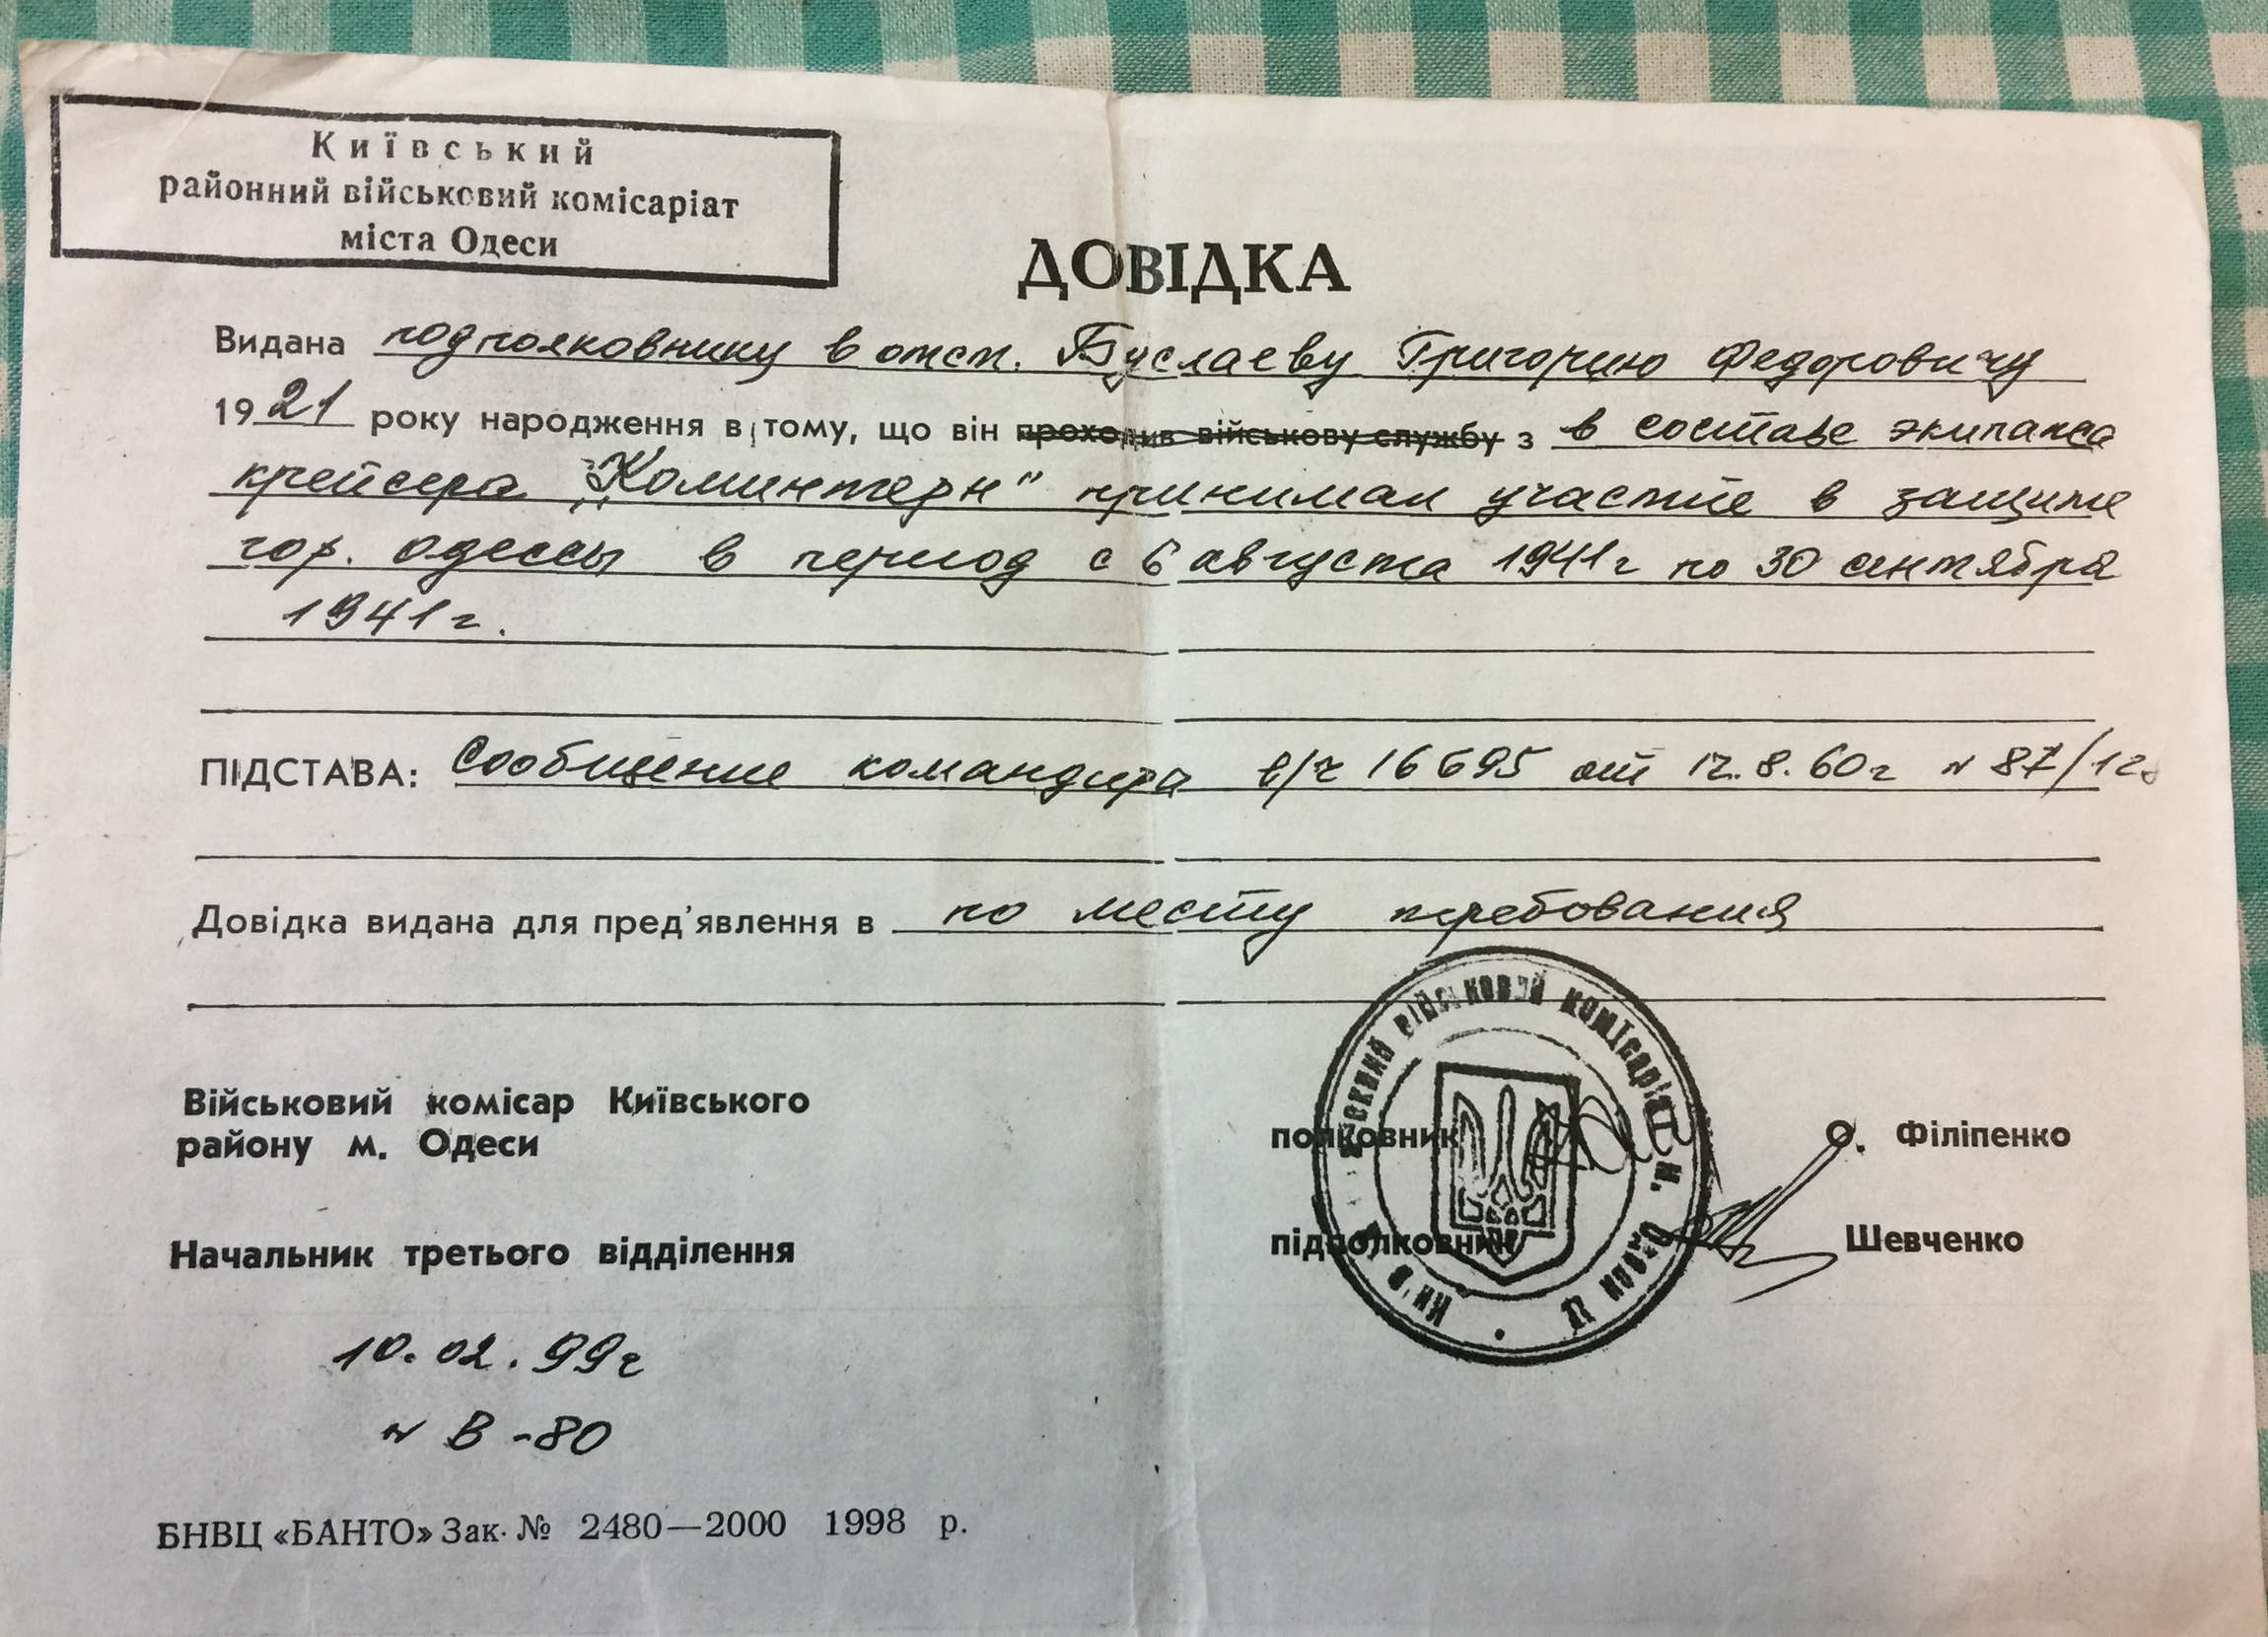 Київський
районний військовий комісаріат
міста Одеси
ДОВІДКА
Видана подполковнику в отст. Буслаеву Григорию Федоровичу
1921 року народження в тому, що він проходив військову службу з в составе экипажа
крейсера „Коминтерн" принимал участие в защите
гор. Одессы в период с 6 августа 1941г по 30 сентября
1941г.
ПІДСТАВА: Сообщение командира в/ч 16695 от 12.8.60г № 87/12
Довідка видана для пред'явлення в по месту требования
Військовий комісар Київського
району м. Одеси
полковник О. Філіпенко
Начальник третього відділення підполковник Шевченко
військовий комісаріат м. Одеси
10.02.99г
№ В-80
БНВЦ «БАНТО» Зак. № 2480—2000 1998 р.